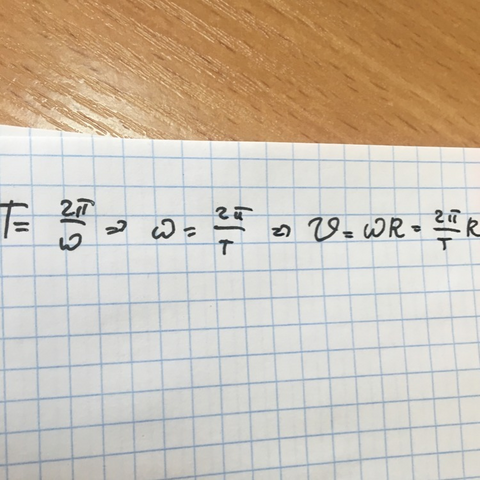 T = 2π/ω ⇒ ω = 2π/T ⇒ v = ωR = 2π/T R